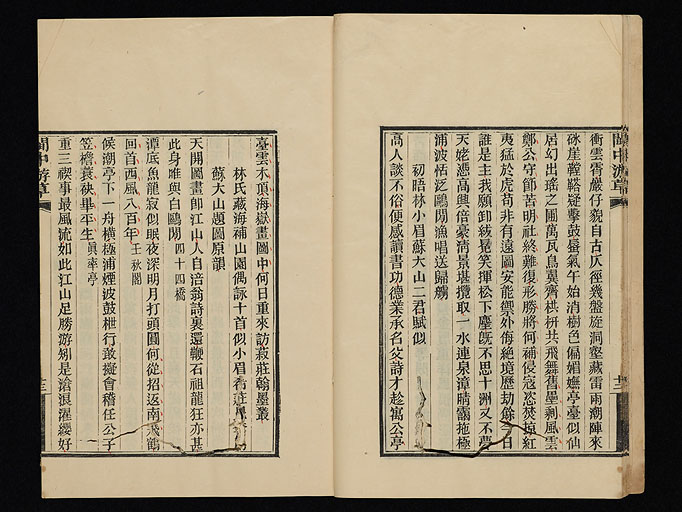 衝雲霄嚴仔貌自古仄徑幾盤旋洞壑藏雷雨潮陣來
砯崖鞺鞳疑擊鼓蜃氣午始消樹色偏媚嫵亭臺似仙
居幻出瑤之圃萬瓦鳥翼齊栱枅共飛舞舊壘剩風雲
鄭公守節苦明社終難復形勝將何補侵寇恣焚掠紅
夷猛於虎苟非有遠圖安能禦外侮絶境歷劫餘今日
誰是主我願卸絨冕笑揮松下塵旣不思十洲又不夢
天姥憑高興倍豪淸景堪攬取一水連泉漳晴靄拖極
浦波恬泛鷗閒漁唱送歸艣
初晤林小眉蘇大山二君賦似
高人談不俗便感讀書功德業承名父詩才趁寓公亭
臺雲木頂海嶽畫圖中何日重來訪菽莊翰墨叢
林氏藏海補山園偶詠十首似小眉
蘇大山題圖原韻
天開圖畫卽江山人自涪翁詩裏還鞭石祖龍狂亦甚
此身唯與白鷗閒 四十四橋
潭底魚龍寂似眠夜深明月打頭圓何從招返南飛鶴
回首西風八百年 壬秋閣
候潮亭下一舟橫極浦煙波鼓枻行敢擬會稽任公子
笠檐蓑袂畢平生 眞率亭
重三禊事最風流如此江山足勝游矧是滄浪濯纓好
閩中游草
閩中游草